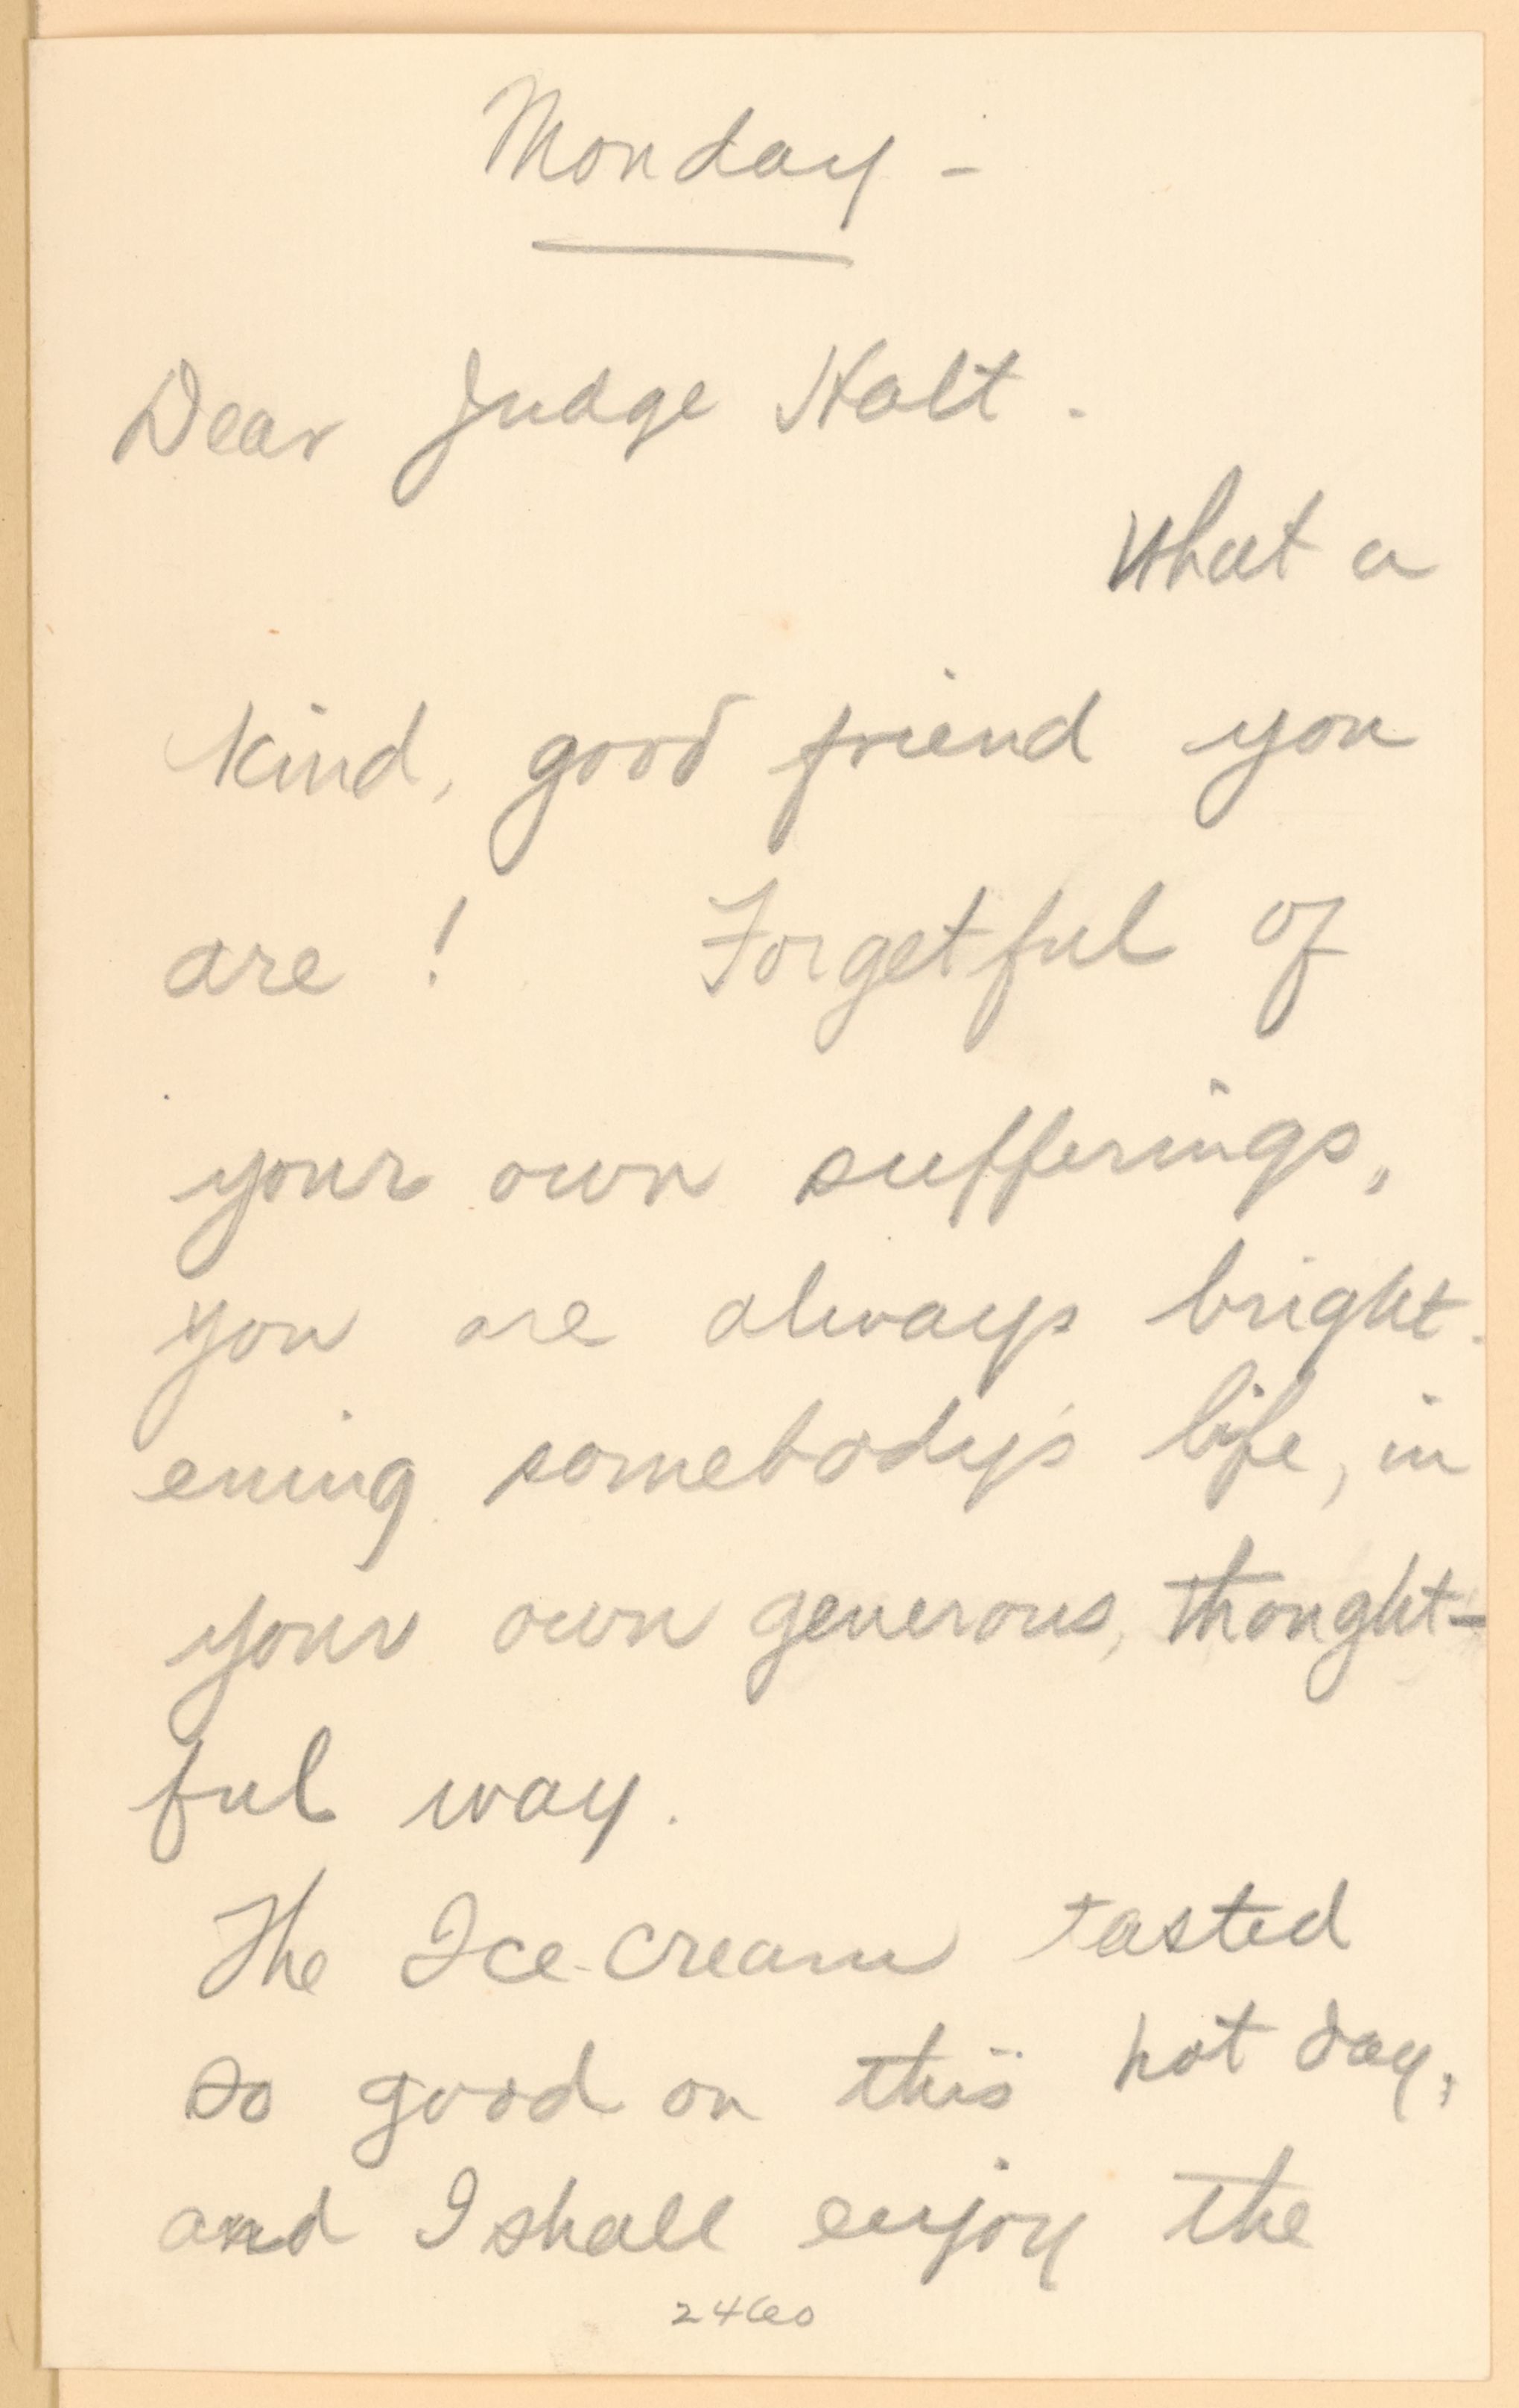 Monday -
Dear Judge Holt.
What a
kind, good friend you
are! Forgetful of
your own sufferings,
you are always bright-
ening somebody's life, in
your own generous, thought-
ful way.
The Ice-cream tasted
so good on this hot day,
and I shall enjoy the
2460